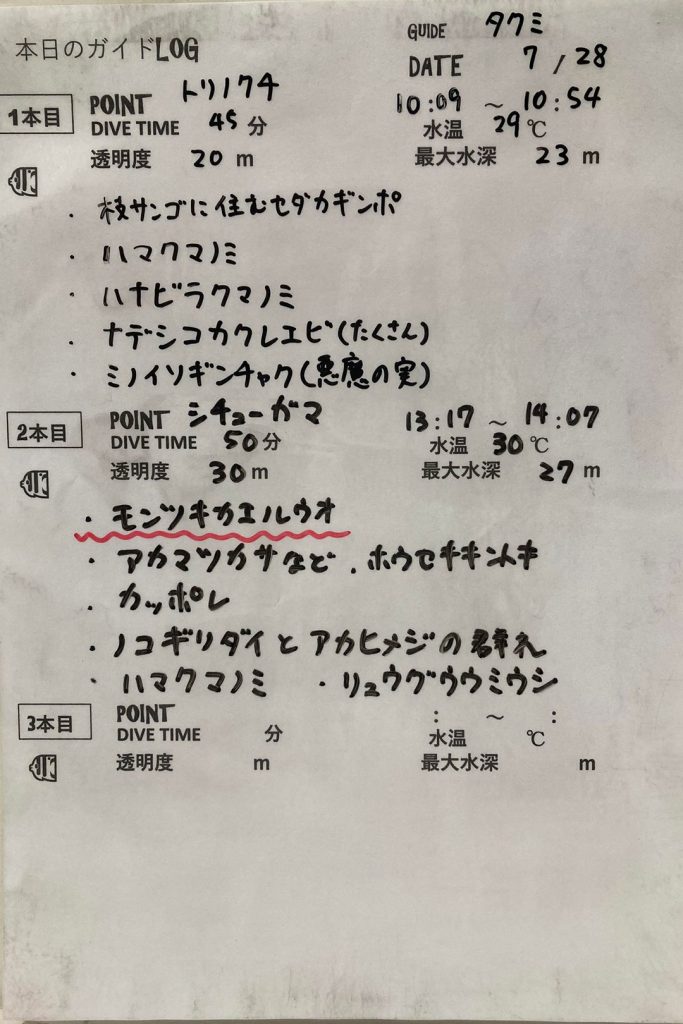 本日のガイドLOG
GUIDE タクミ
DATE 7/28
1本目
POINT トリノクチ
10:09 ~ 10:54
DIVE TIME 45分
水温 29℃
透明度 20m
最大水深 23m
・枝サンゴに住むセダカギンポ
・ハマクマノミ
・ハナビラクマノミ
・ナデシコカクレエビ(たくさん)
・ミノイソギンチャク(悪魔の実)
2本目
POINT シチューガマ
13:17 ~ 14:07
DIVE TIME 50分
水温 30℃
透明度 30m
最大水深 27m
・モンツキカエルウオ
・アカマツカサなど、ホウセキキントキ
・カッポレ
・ノコギリダイとアカヒメジの群れ
・ハマクマノミ ・リュウグウウミウシ
3本目
POINT
: ~ :
DIVE TIME 分
水温 ℃
透明度 m
最大水深 m